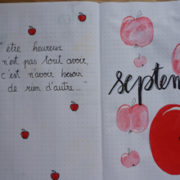 "être heureux
n'est pas tout avoir,
c'est n'avoir besoin
de rien d'autre..."
septem